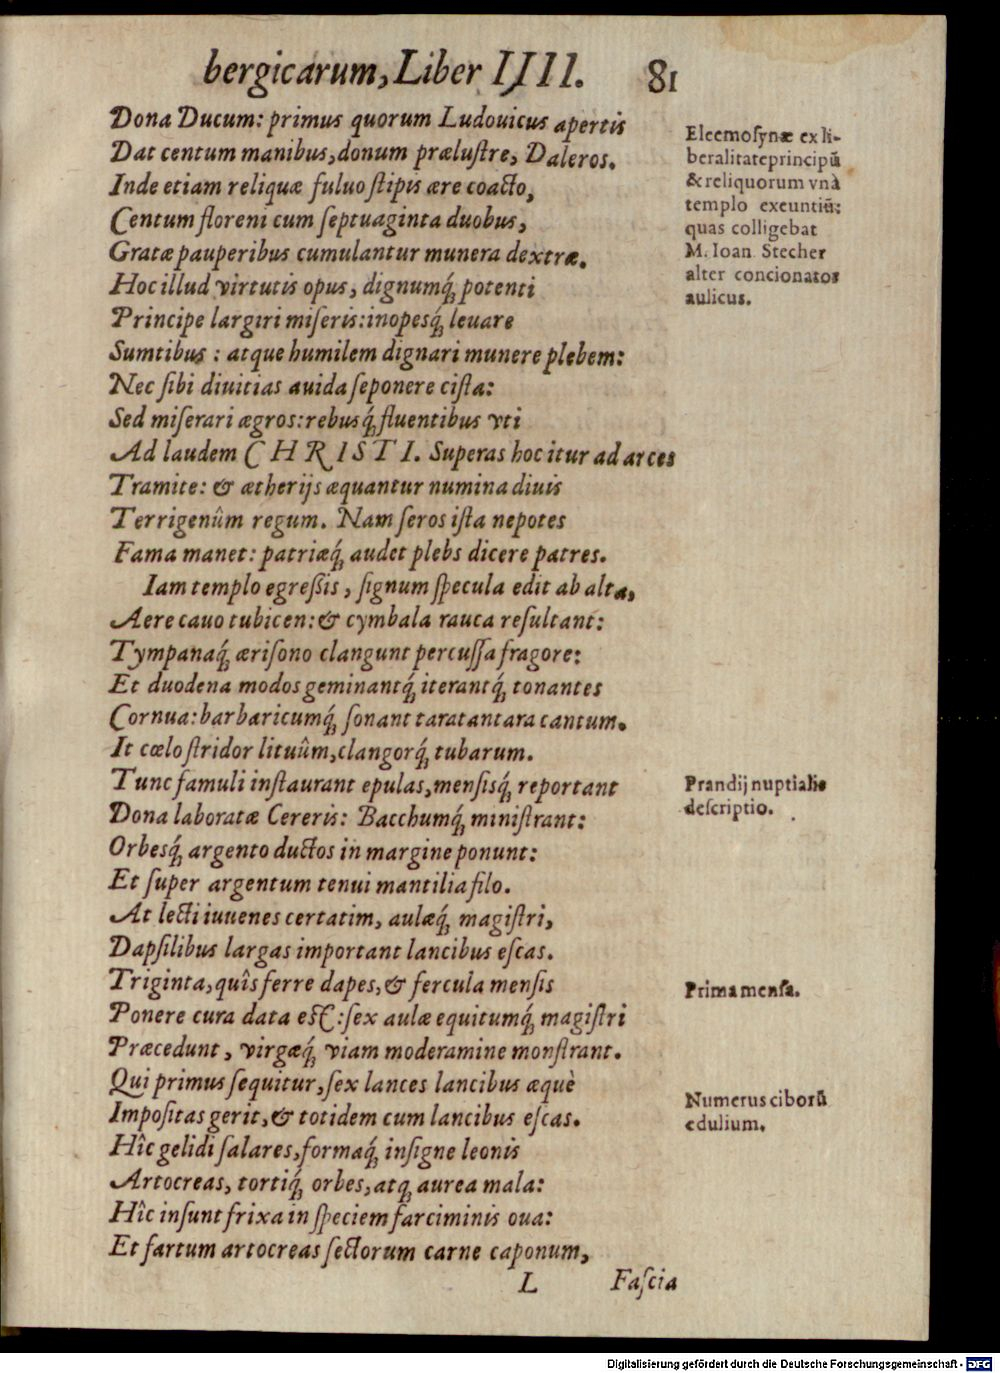 bergicarum, Liber IIII. 81
Dona Ducum: primus quorum Ludouicus apertis
Dat centum manibus, donum præluſtre, Daleros.
Inde etiam reliquæ fuluo ſtipis ære coacto,
Centum floreni cum ſeptuaginta duobus,
Gratæ pauperibus cumulantur munera dextræ.
Hoc illud virtutis opus, dignumq́; potenti
Principe largiri miſeris: inopesq́; leuare
Sumtibus: atque humilem dignari munere plebem:
Nec ſibi diuitias auida ſeponere ciſta:
Sed miſerari ægros: rebusq́; fluentibus vti
Ad laudem CHRISTI. Superas hoc itur ad arces
Tramite: & ætherijs æquantur numina diuis
Terrigenûm regum. Nam ſeros iſta nepotes
Fama manet: patriæq́; audet plebs dicere patres.
Iam templo egreßis, ſignum ſpecula edit ab alta,
Aere cauo tubicen: & cymbala rauca reſultant:
Tympanaq́; æriſono clangunt percuſſa fragore:
Et duodena modos geminantq́; iterantq́; tonantes
Cornua: barbaricumq́; ſonant taratantara cantum.
It cœlo ſtridor lituûm, clangorq́; tubarum.
Tunc famuli inſtaurant epulas, menſisq́; reportant
Dona laboratæ Cereris: Bacchumq́; miniſtrant:
Orbesq́; argento ductos in margine ponunt:
Et ſuper argentum tenui mantilia filo.
At lecti iuuenes certatim, aulæq́; magiſtri,
Dapſilibus largas important lancibus eſcas.
Triginta, quîs ferre dapes, & fercula menſis
Ponere cura data eſt: ſex aulæ equitumq́; magiſtri
Præcedunt, virgæq́; viam moderamine monſtrant.
Qui primus ſequitur, ſex lances lancibus æquè
Impoſitas gerit, & totidem cum lancibus eſcas.
Hîc gelidi ſalares, formaq́; inſigne leonis
Artocreas, tortiq́; orbes, atq; aurea mala:
Hîc inſunt frixa in ſpeciem farciminis oua:
Et fartum artocreas ſectorum carne caponum,
L Faſcia
Eleemoſynæ ex li-
beralitate principũ
& reliquorum vnà
templo exeuntiũ:
quas colligebat
M. Ioan. Stecher
alter concionator
aulicus.
Prandij nuptialis
deſcriptio.
Prima menſa.
Numerus ciborũ
edulium.
Digitalisierung gefördert durch die Deutsche Forschungsgemeinschaft - DFG